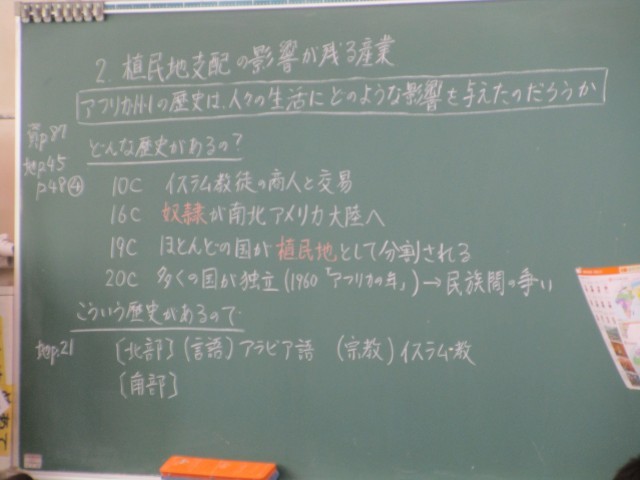 2. 植民地支配の影響が残る産業
アフリカ州の歴史は、人々の生活にどのような影響を与えたのだろうか
資p87
どんな歴史があるの?
地p45
p48④
10C イスラム教徒の商人と交易
16C 奴隷が南北アメリカ大陸へ
19C ほとんどの国が植民地として分割される
20C 多くの国が独立(1960「アフリカの年」)→民族間の争い
こういう歴史があるので
地p.21 〔北部〕(言語)アラビア語 (宗教)イスラム教
〔南部〕